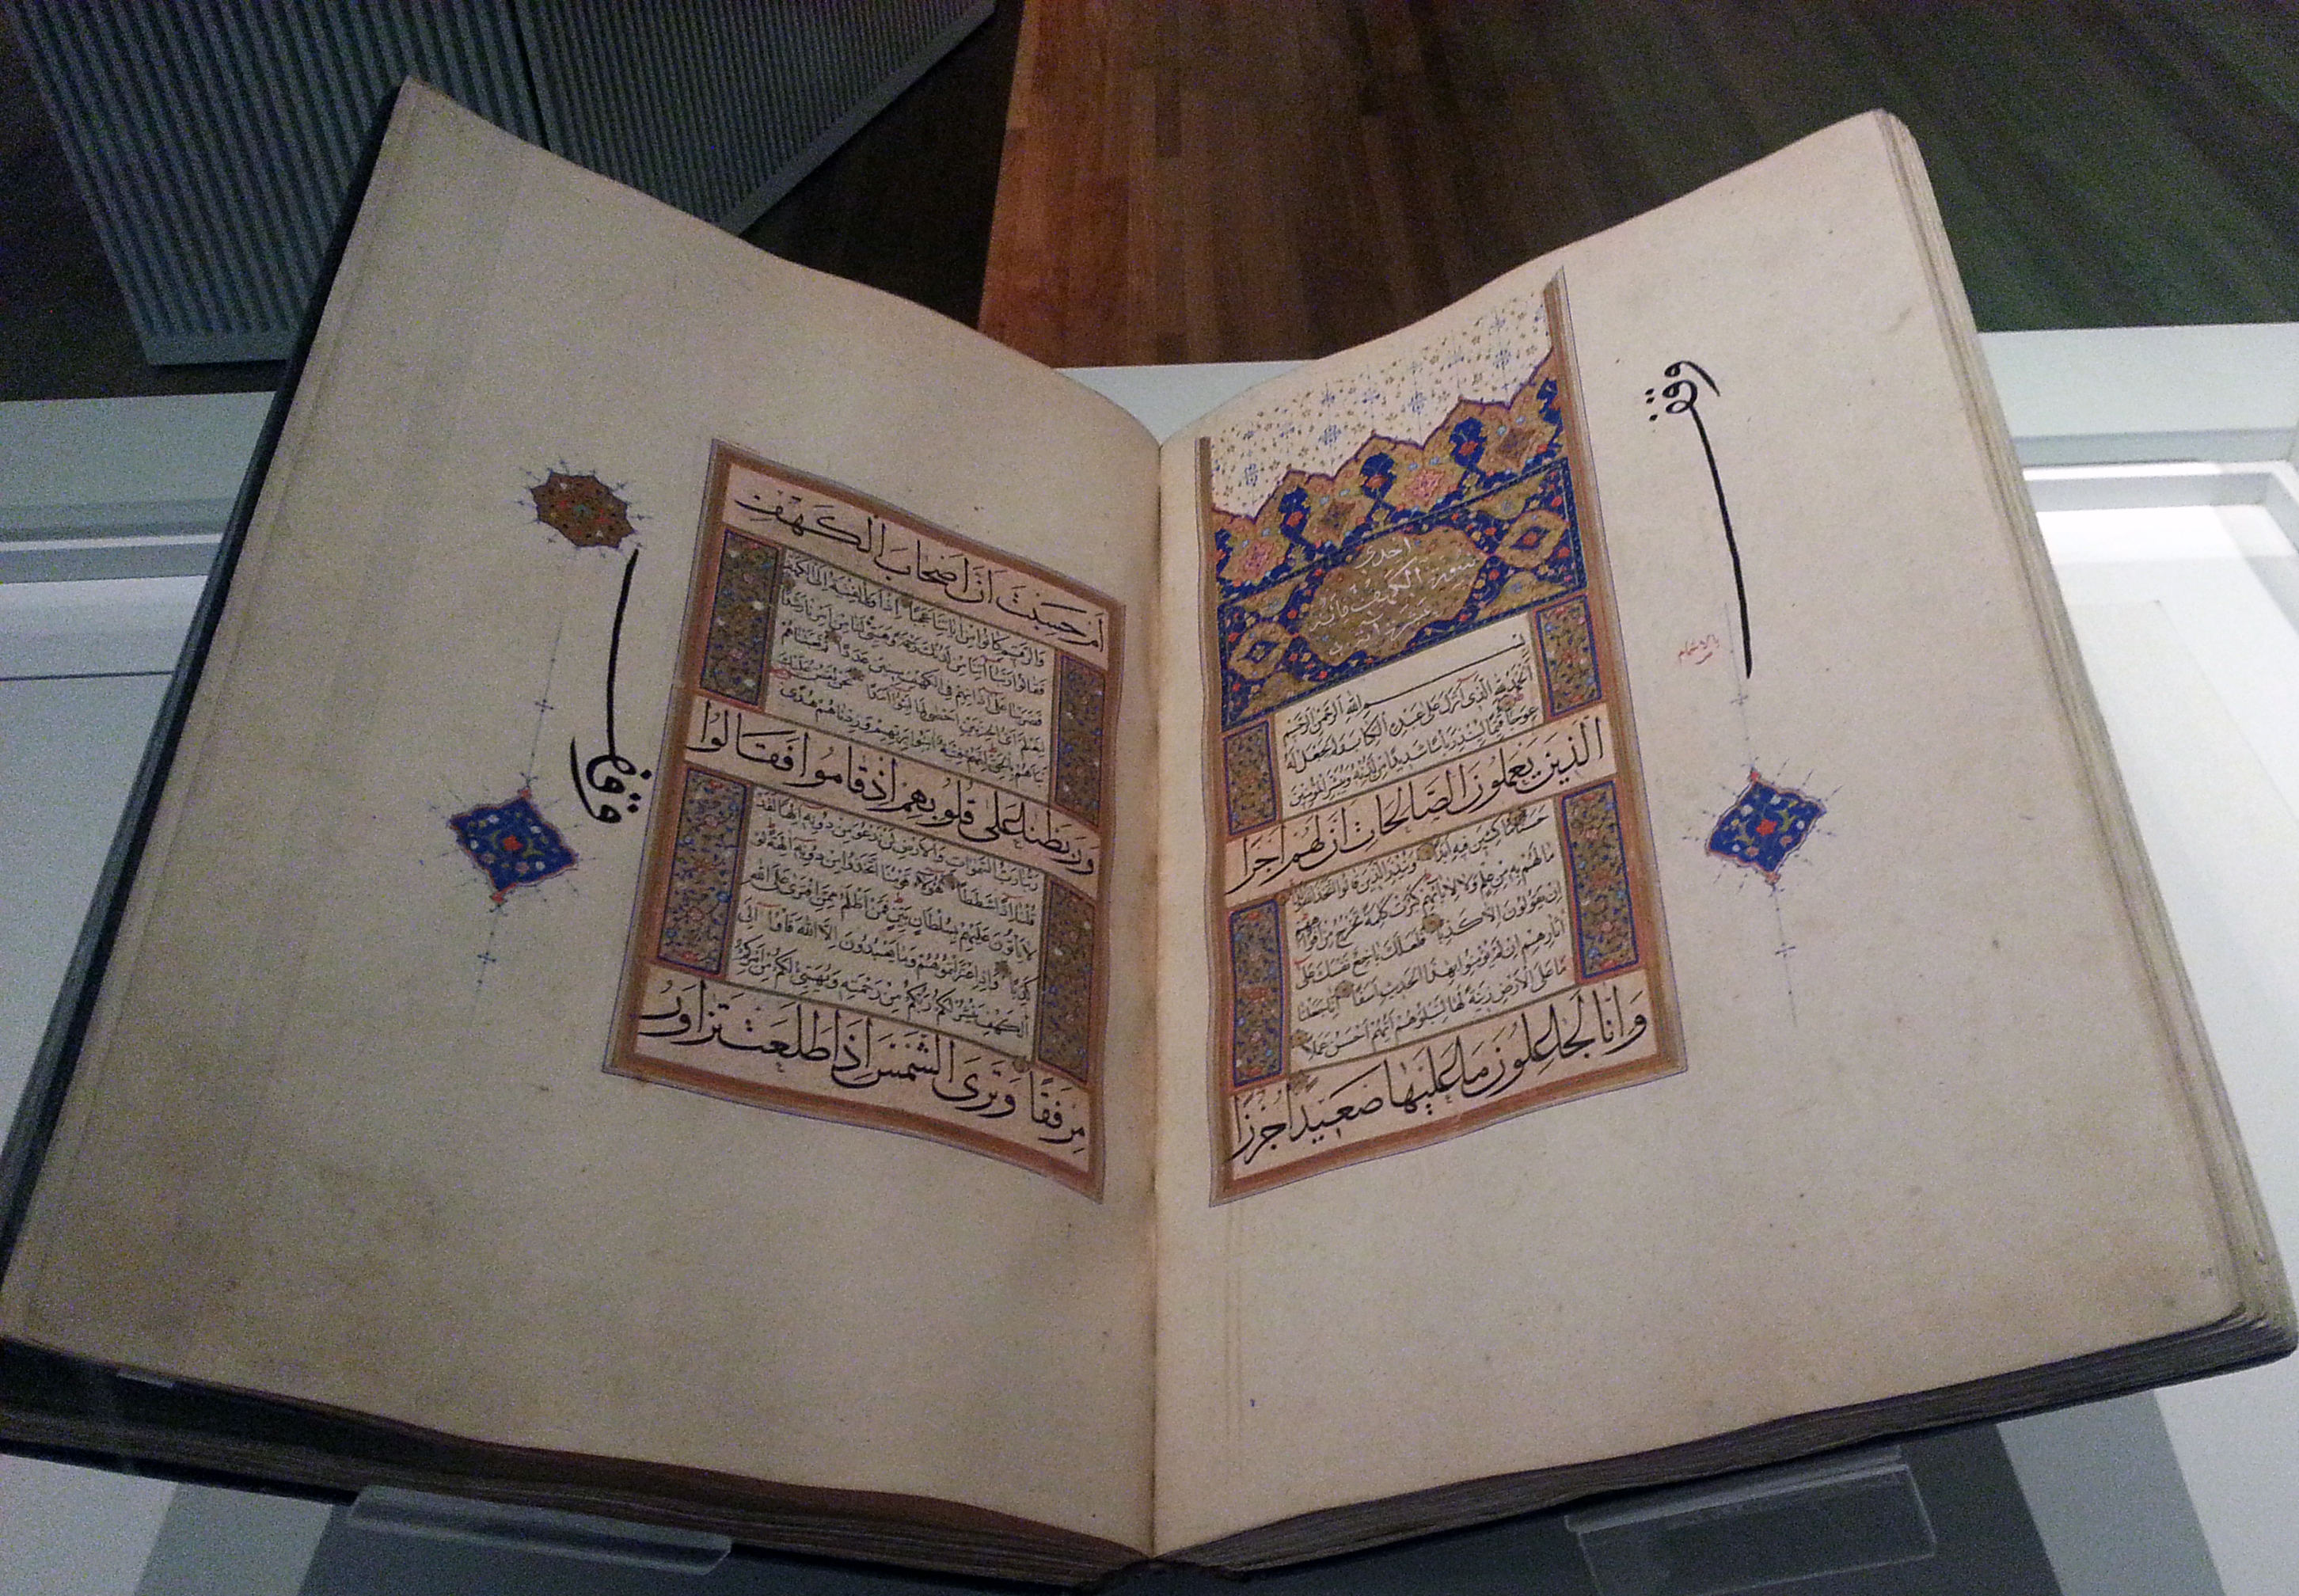 احدى
سورة الكهف مائة
عشرة اية
بسم الله الرحمن الرحيم
الحمد لله الذي انزل على عبده الكتاب ولم يجعل له
عوجا قيما لينذر بأسا شديدا من لدنه ويبشر المؤمنين
الذين يعملون الصالحات ان لهم اجرا
حسنا ماكثين فيه ابدا وينذر الذين قالوا اتخذ الله ولدا
ما لهم به من علم ولا لابائهم كبرت كلمة تخرج من افواههم
ان يقولون الا كذبا فلعلك باخع نفسك على
اثارهم ان لم يؤمنوا بهذا الحديث اسفا انا جعلنا
ما على الارض زينة لها لنبلوهم ايهم احسن عملا
وانا لجاعلون ما عليها صعيدا جرزا
وقف
ام حسبت ان اصحاب الكهف
والرقيم كانوا من اياتنا عجبا اذ اوى الفتية الى الكهف
فقالوا ربنا اتنا من لدنك رحمة وهيئ لنا من امرنا رشدا
فضربنا على اذانهم في الكهف سنين عددا ثم بعثناهم
لنعلم اي الحزبين احصى لما لبثوا امدا نحن نقص عليك
نبأهم بالحق انهم فتية امنوا بربهم وزدناهم هدى
وربطنا على قلوبهم اذ قاموا فقالوا
ربنا رب السموات والارض لن ندعو من دونه الها لقد
قلنا اذا شططا هؤلاء قومنا اتخذوا من دونه الهة لولا
يأتون عليهم بسلطان بين فمن اظلم ممن افترى على الله
كذبا واذ اعتزلتموهم وما يعبدون الا الله فأووا الى
الكهف ينشر لكم ربكم من رحمته ويهيئ لكم من امركم
مرفقا وترى الشمس اذا طلعت تزاور